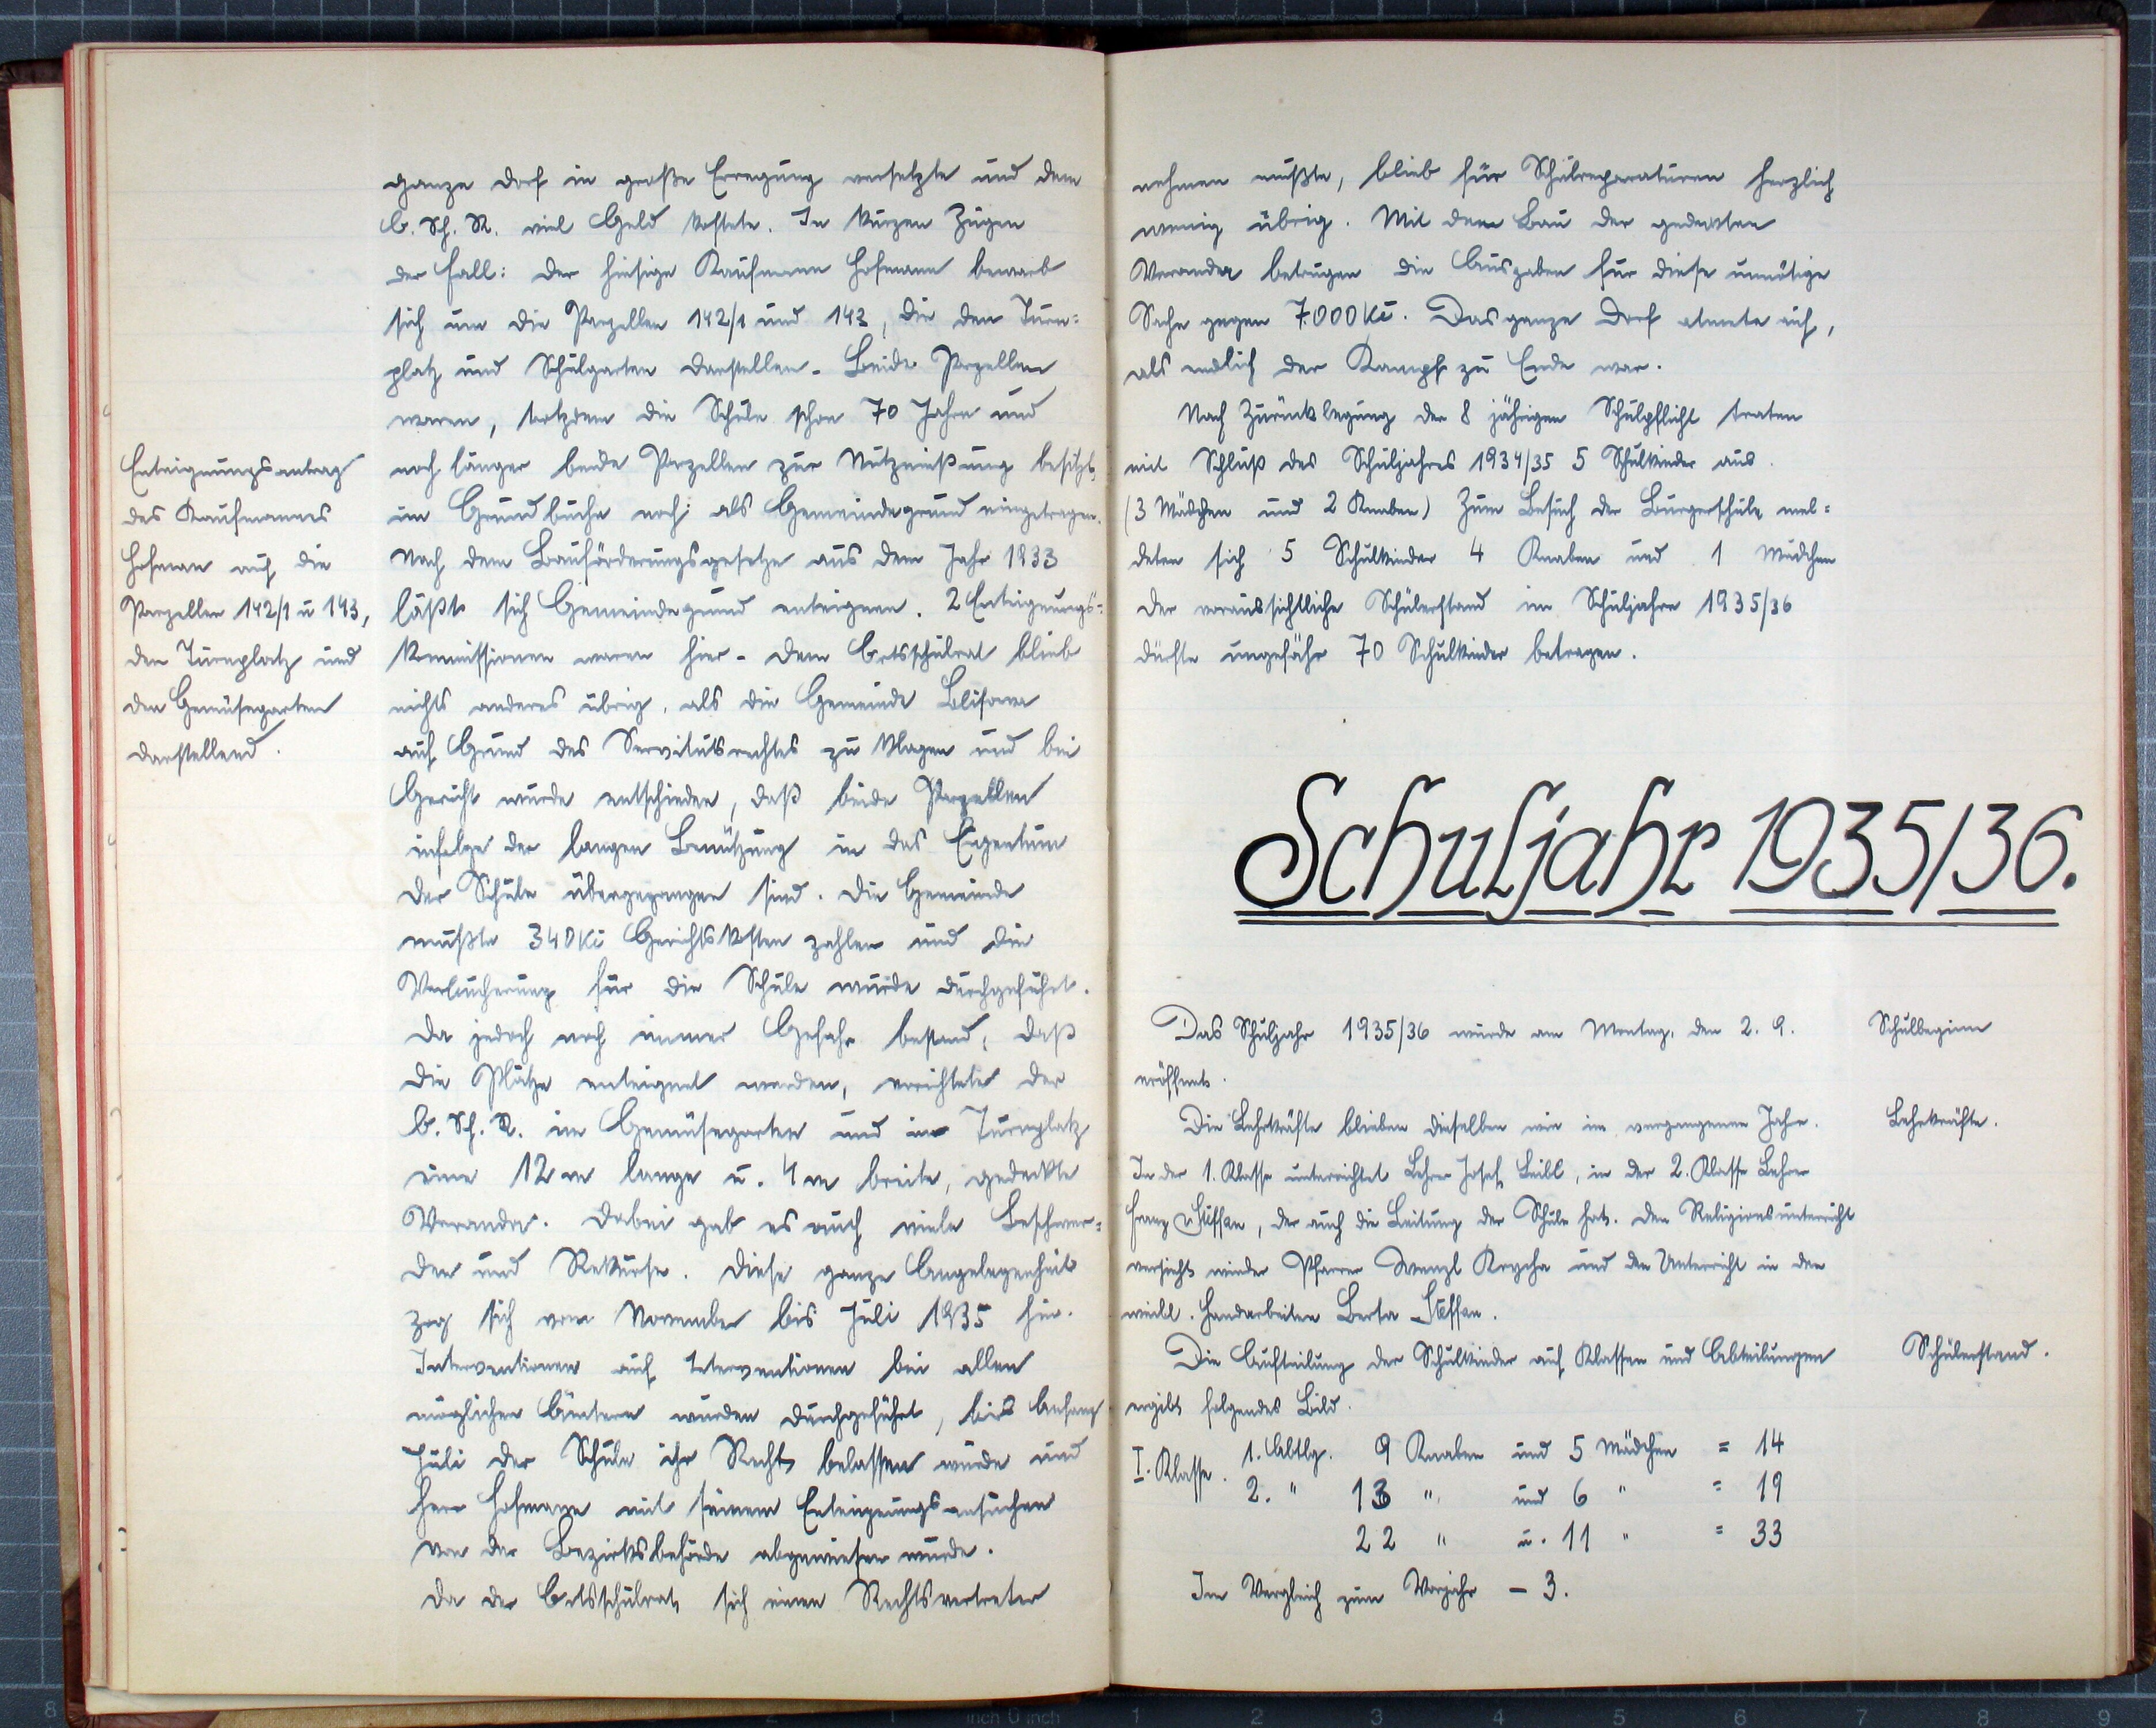 ganze Dorf in große Erregung versetzte und dem
O. Sch. R. viel Geld kostete. In kurzen Zügen
der Fall: Der hiesige Kaufmann Hofmann bewarb
sich um die Parzellen 142/1 und 143, die den Turn=
platz und Schulgarten darstellen. Beide Parzellen
waren, trotzdem die Schule schon 70 Jahre und
noch länger beide Parzellen zur Nutznießung besitzt,
im Grundbuche noch als Gemeindegrund eingetragen.
Nach dem Bauförderungsgesetze aus dem Jahr 1933
läßt sich Gemeindegrund enteignen. 2 Enteignungs=
kommissionen waren hier. Dem Ortsschulrat blieb
nichts anderes übrig, als die Gemeinde Blisowa
auf Grund des Servitutsrechtes zu klagen und bei
Gericht wurde entschieden, daß beide Parzellen
infolge der langen Benützung in das Eigentum
der Schule übergegangen sind. Die Gemeinde
mußte 340 Kč Gerichtskosten zahlen und die
Verbücherung für die Schule wurde durchgeführt.
Da jedoch noch immer Gefahr bestand, daß
die Plätze enteignet werden, errichtete der
O. Sch. R. im Gemüsegarten und im Turnplatz
eine 12 m lange u. 4 m breite, gedeckte
Veranda. Dabei gab es auch viele Beschwer=
den und Rekurse. Diese ganze Angelegenheit
zog sich vom November bis Juli 1935 hin.
Interventionen auf Interventionen bei allen
möglichen Ämtern wurden durchgeführt, bis Anfang
Juli der Schule ihr Recht belassen wurde und
Herr Hofmann mit seinem Enteignungsansuchen
von der Bezirksbehörde abgewiesen wurde.
Da der Ortsschulrat sich einen Rechtsvertreter
Enteignungsantrag
des Kaufmannes
Hofman auf die
Parzellen 142/1 u 143,
den Turnplatz und
den Gemüsegarten
darstellend.
nehmen mußte, blieb für Schulreparaturen herzlich
wenig übrig. Mit dem Bau der gedeckten
Veranda betrugen die Ausgaben für diese unnötige
Sache gegen 7.000 Kč. Das ganze Dorf atmete auf,
als endlich der Kampf zu Ende war.
Nach Zurücklegung der 8 jährigen Schulpflicht traten
mit Schluß des Schuljahres 1934/35 5 Schulkinder aus.
(3 Mädchen und 2 Knaben) Zum Besuch der Bürgerschule mel=
deten sich 5 Schulkinder 4 Knaben und 1 Mädchen
Der voraussichtliche Schülerstand im Schuljahre 1935/36
dürfte ungefähr 70 Schulkinder betragen.
Schuljahr 1935/36.
Das Schuljahr 1935/36 wurde am Montag, den 2. 9.
eröffnet.
Schulbeginn
Die Lehrkräfte blieben dieselben wie im vergangenen Jahr.
Lehrkräfte.
In der 1. Klasse unterrichtet Lehrer Josef Leibl, in der 2. Klasse Lehrer
Franz Steffan, der auch die Leitung der Schule hat. Den Religionsunterricht
versieht wieder Pfarrer Wenzl Krycha und den Unterricht in den
weibl. Handarbeiten Berta Steffan.
Die Aufteilung der Schulkinder auf Klassen und Abteilungen
Schülerstand.
ergibt folgendes Bild.
I. Klasse. 1. Abtlg. 9 Knaben und 5 Mädchen = 14
2. " 13 " und 6 " = 19
22 " u. 11 " = 33
Im Vergleich zum Vorjahr – 3.